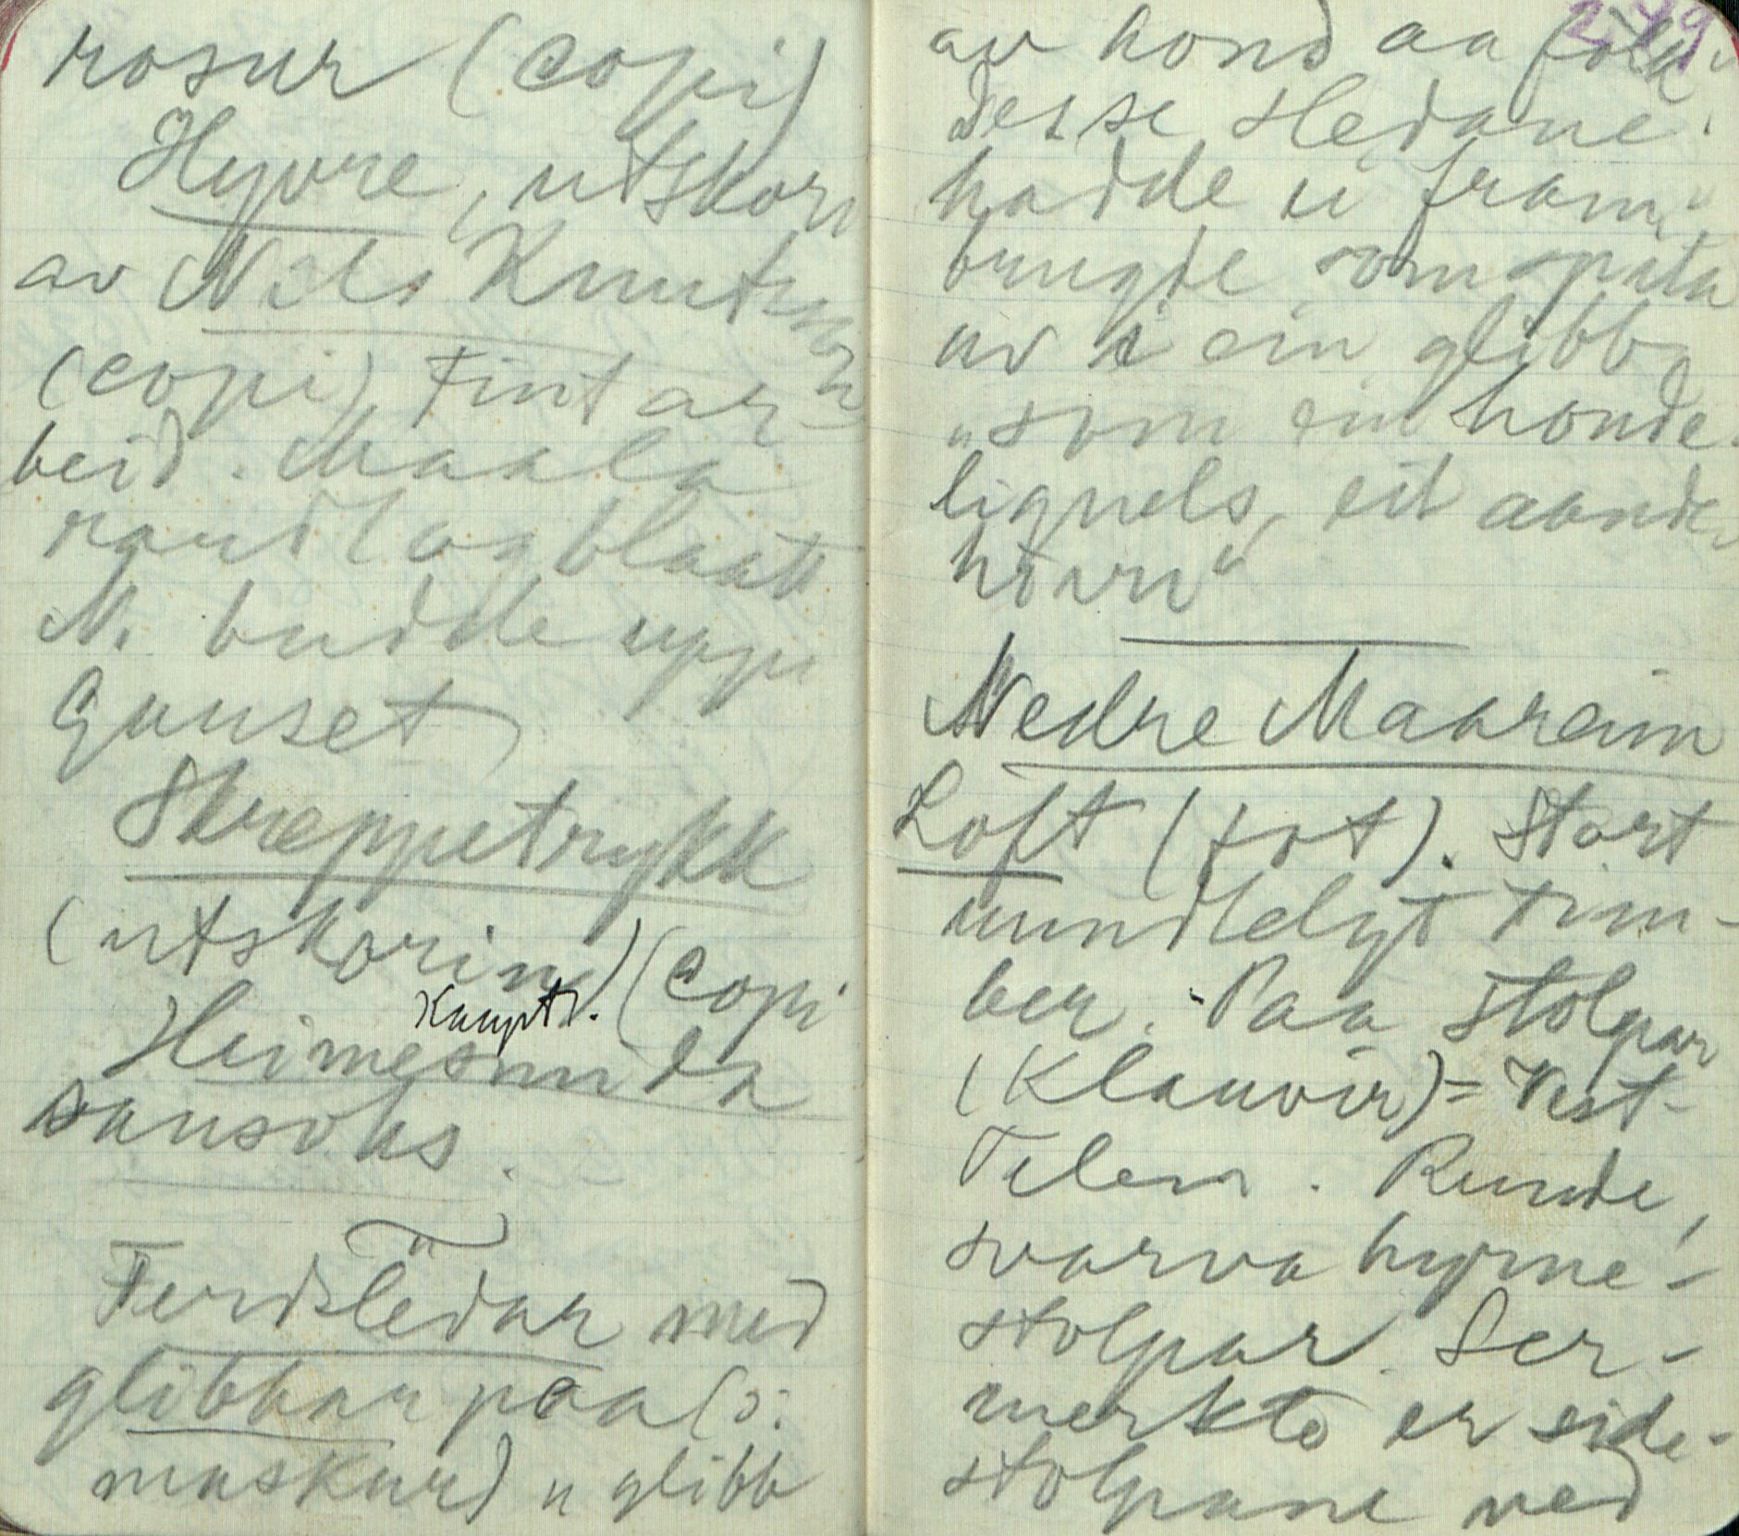 rosur (copi)
Hyvre, utskori
av Nils Knutsen
(copi) Fint ar-
beid. Maala
raudt og blaatt
N. budde uppi
Gauset
Skreppetrykk
(utskorin) (copi
Kaupt.
Heimesmida
sausoks.
Ferdsledar med
glibbar paa (o:
maskur) "glibb
249
av hond aa fölk"
Desse sledane
hadde ei fram-
bungde som spita
av i ein glibb
"som ein honde-
lignels, eit aande-
hovu"
Nedre Maareim
Loft (fot). Stort
uundtelgt tim-
ber. Paa stolpar
(Klauvir) = Vest-
Telem. Runde,
svarva hyrne-
stolpar. Ser-
merkte er side-
stolpane ved